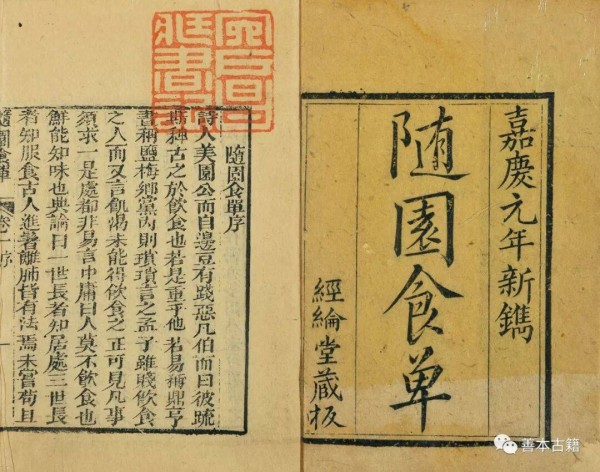 嘉慶元年新鐫
随園食单
經綸堂藏板
隨園食單序
詩人美周公而曰籩豆有踐惡凡伯而曰彼疏
斯稗古之於飲食也若是重乎他若易稱鼎亨
書稱鹽梅鄉黨内則瑣瑣言之孟子雖賤飲食
之人而又言飢渴未能得飲食之正可見凡事
須求一是處都非易言中庸曰人莫不飲食也
鮮能知味也典論曰一世長者知居處三世長
者知服食古人進鬐離肺皆有法焉未嘗苟且
隨園食單 序
善本古籍